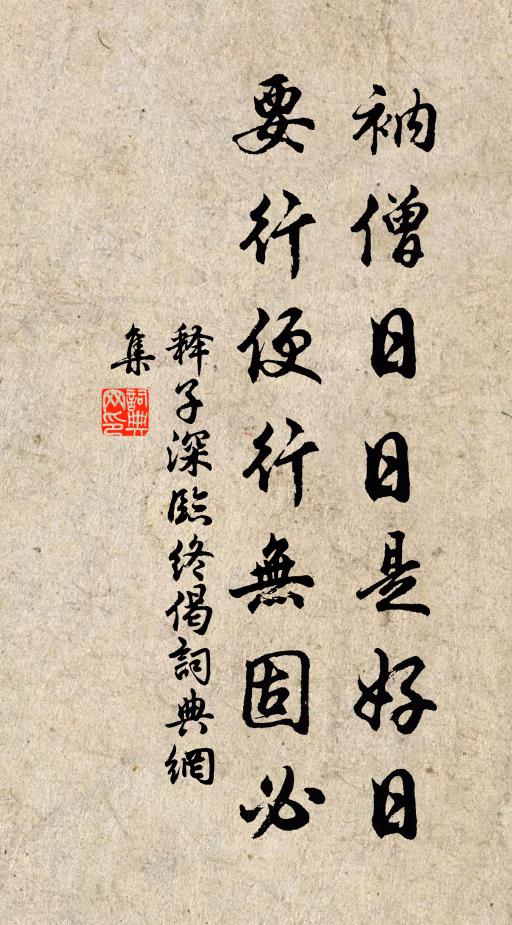 衲僧日日是好日
要行便行無固必
释子深臨终偈詞典網
集
詞典
网印